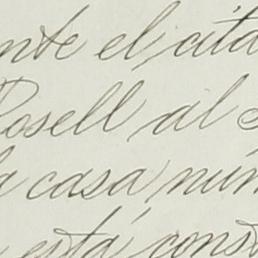 nte el cita
Rosell al s
a casa núm
está const